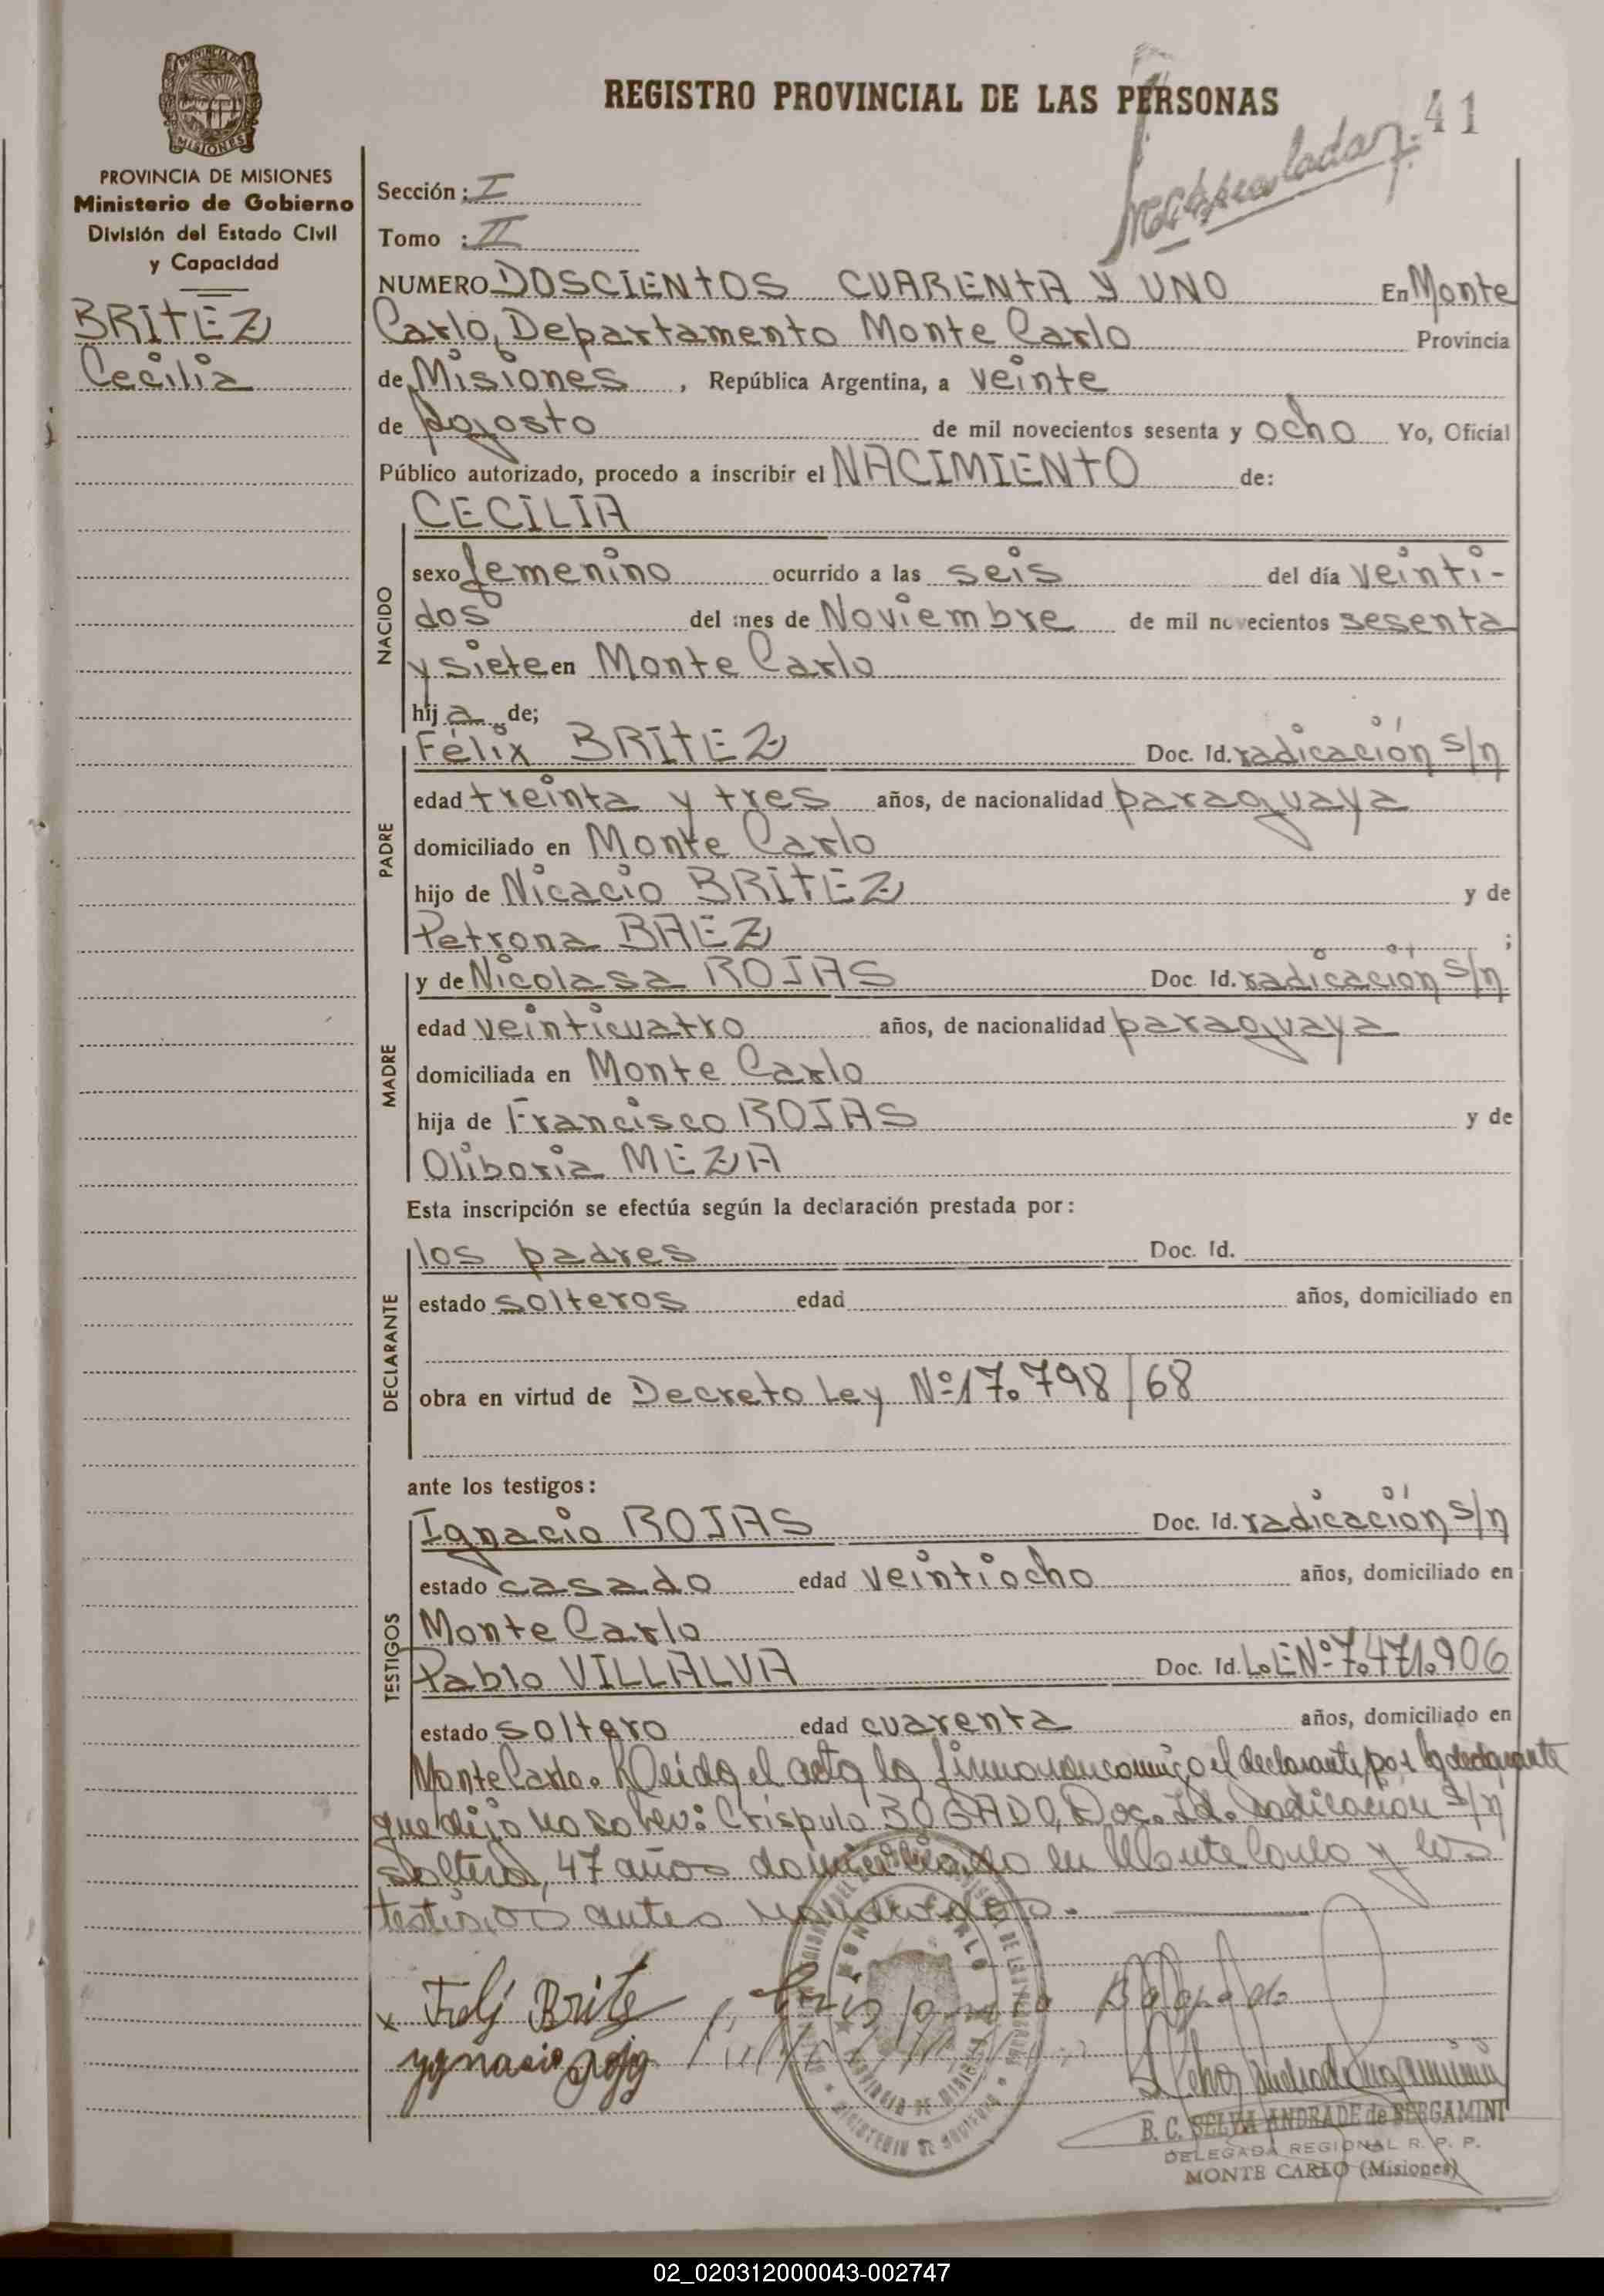 REGISTRO PROVINCIAL DE LAS PERSONAS
41
PROVINCIA DE MISIONES
Ministerio de Gobierno
División del Estado Civil
y Capacidad
BRITEZ
Cecilia
Sección: I
Tomo : II
NUMERO DOSCIENTOS CUARENTA Y UNO En Monte
Carlo, Departamento Monte Carlo Provincia
de Misiones, República Argentina, a veinte
de Agosto de mil novecientos sesenta y ocho Yo, Oficial
Público autorizado, procedo a inscribir el NACIMIENTO de:
NACIDO
CECILIA
sexo femenino ocurrido a las seis del día veinti-
dos del mes de Noviembre de mil novecientos sesenta
y siete en Monte Carlo
hij a de;
PADRE
Félix BRITEZ Doc. Id. radicación s/n
edad treinta y tres años, de nacionalidad paraguaya
domiciliado en Monte Carlo
hijo de Nicacio BRITEZ y de
Petrona BAEZ ;
MADRE
y de Nicolasa ROJAS Doc. Id. radicación s/n
edad veinticuatro años, de nacionalidad paraguaya
domiciliada en Monte Carlo
hija de Francisco ROJAS y de
Oliboria MEZA
Esta inscripción se efectúa según la declaración prestada por:
DECLARANTE
los padres Doc. Id.
estado solteros edad años, domiciliado en
obra en virtud de Decreto Ley Nº 17.798/68
ante los testigos:
TESTIGOS
Ignacio ROJAS Doc. Id. radicación s/n
estado casado edad veintiocho años, domiciliado en
Monte Carlo
Pablo VILLALVA Doc. Id. L.E Nº 7.471.906
estado soltero edad cuarenta años, domiciliado en
Monte Carlo. Leida el acta la firmaron conmigo el declarante, por la declarante
que dijo no saber: Críspulo BOGADO, Doc. Id. radicación s/n
soltero, 47 años domiciliado en Monte Carlo y los
testigos antes
x Felj Brite Bogado
ygnasio rojg
MONTE CARLO
PROVINCIA DE MISIONES
MINISTERIO DE GOBIERNO
B. C. SELVA ANDRADE de BERGAMINI
DELEGADA REGIONAL R. P. P.
MONTE CARLO (Misiones)
02_020312000043-002747